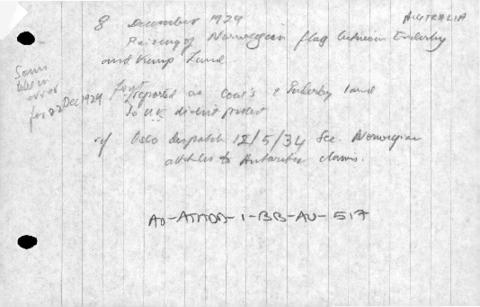 AUSTRALIA
8 December 1929
Raising of Norwegian flag between Enderby
and Kemp Land
Same
error
for 22 Dec 1929
reported as Coat's & Enderby land
To UK did not protest
cf Oslo despatch 12/5/34 See Norwegian
attitude to Antarctic claims.
AO-ATADD-1-BB-AU-517